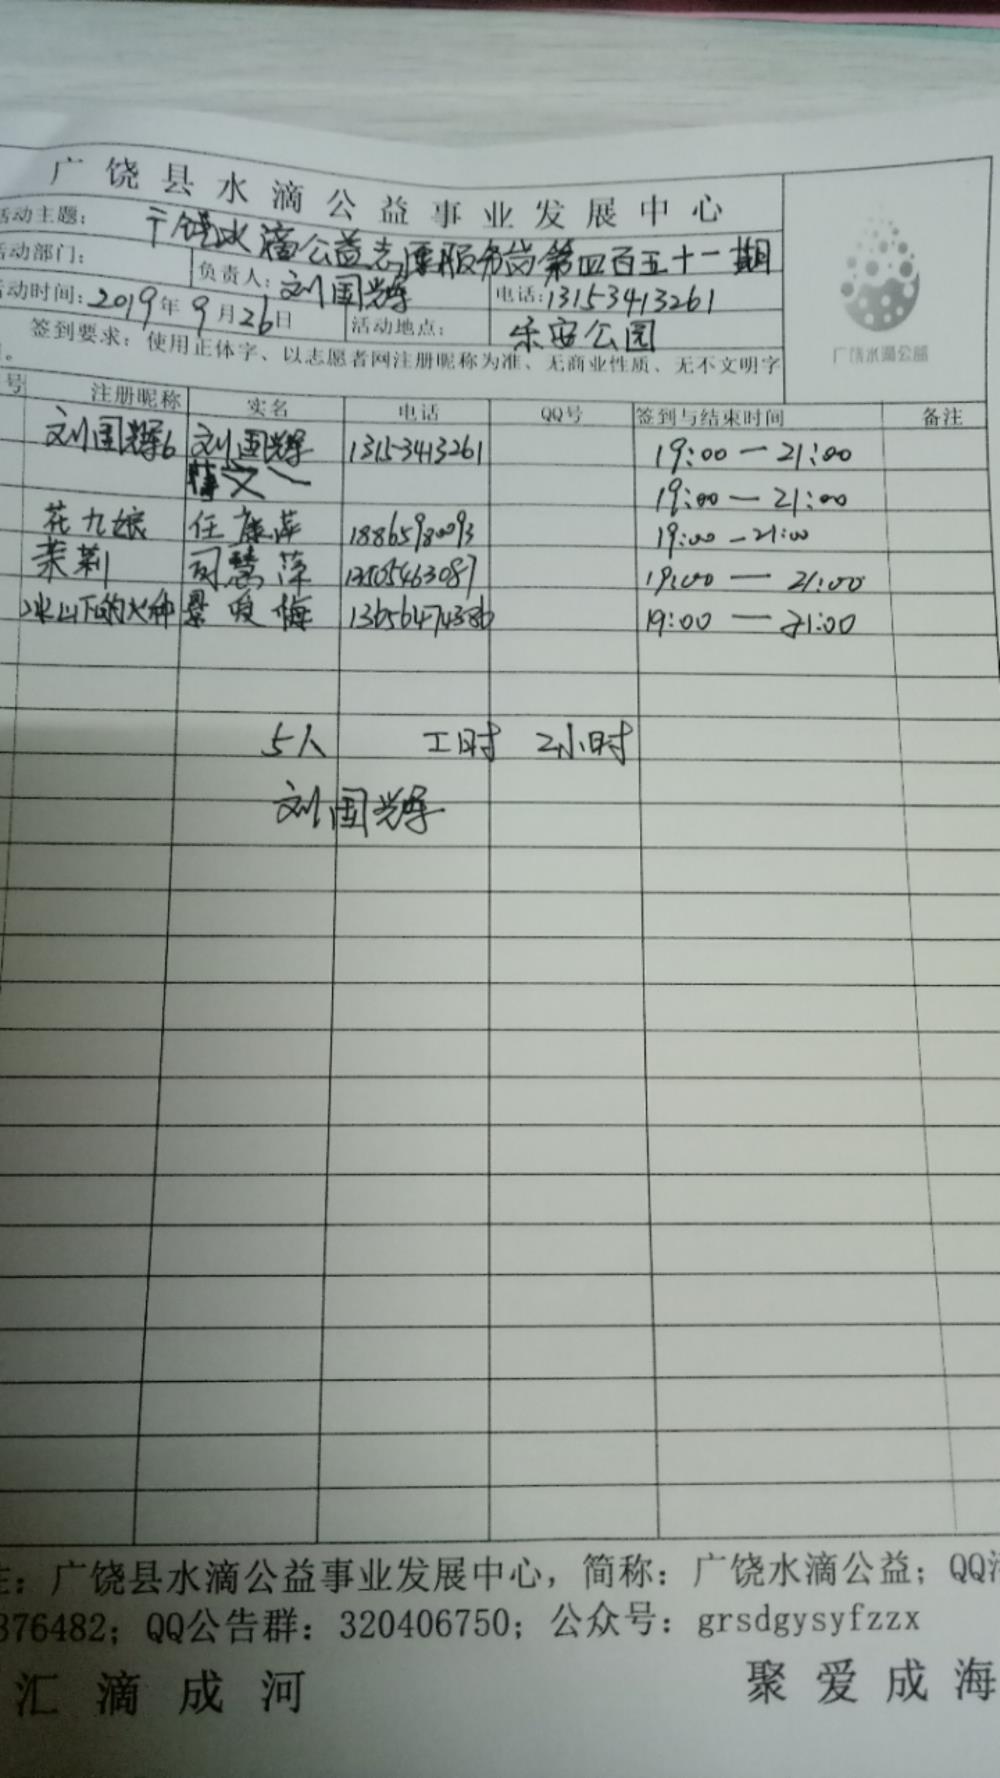 广饶县水滴公益事业发展中心
活动主题: 广饶水滴公益志愿服务岗第四百五十一期
活动部门: 负责人: 刘国辉 电话: 13153413261
活动时间: 2019年9月26日 活动地点: 乐安公园
签到要求: 使用正体字、以志愿者网注册昵称为准、无商业性质、无不文明字
广饶水滴公益
号 注册昵称 实名 电话 QQ号 签到与结束时间 备注
刘国辉6 刘国辉 13153413261 19:00—21:00
19:00—21:00
花九娘 任康萍 18865980093 19:00—21:00
茉莉 司慧萍 19:00—21:00
冰山下的火种 19:00—21:00
5人 工时 2小时
刘国辉
注: 广饶县水滴公益事业发展中心, 简称: 广饶水滴公益; QQ
376482; QQ公告群: 320406750; 公众号: grsdgysyfzzx
汇滴成河 聚爱成海